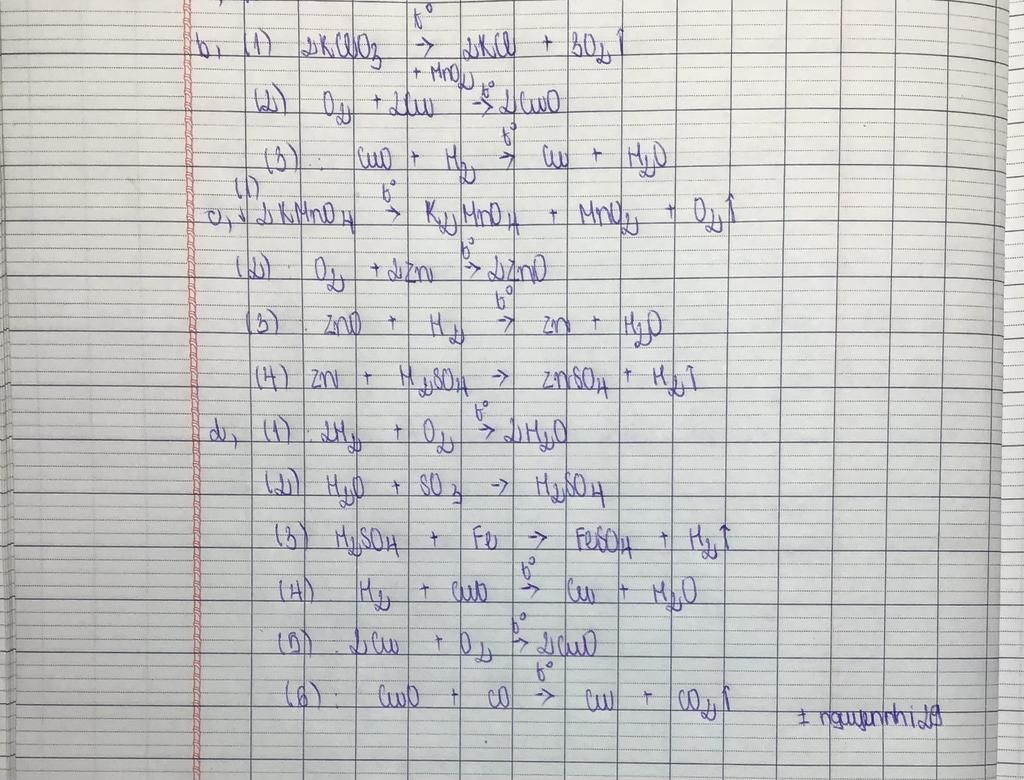 b, (1) 2KClO₃ t° → + MnO₂ 2KCl + 3O₂↑
(2) O₂ + 2Cu t° → 2CuO
(3) : CuO + H₂ t° → Cu + H₂O
c, (1) 2KMnO₄ t° → K₂MnO₄ + MnO₂ + O₂↑
(2) O₂ + 2Zn t° → 2ZnO
(3) ZnO + H₂ t° → Zn + H₂O
(4) Zn + H₂SO₄ → ZnSO₄ + H₂↑
d, (1) 2H₂ + O₂ t° → 2H₂O
(2) H₂O + SO₃ → H₂SO₄
(3) H₂SO₄ + Fe → FeSO₄ + H₂↑
(4) H₂ + CuO t° → Cu + H₂O
(5) 2Cu + O₂ t° → 2CuO
(6) : CuO + CO t° → Cu + CO₂↑